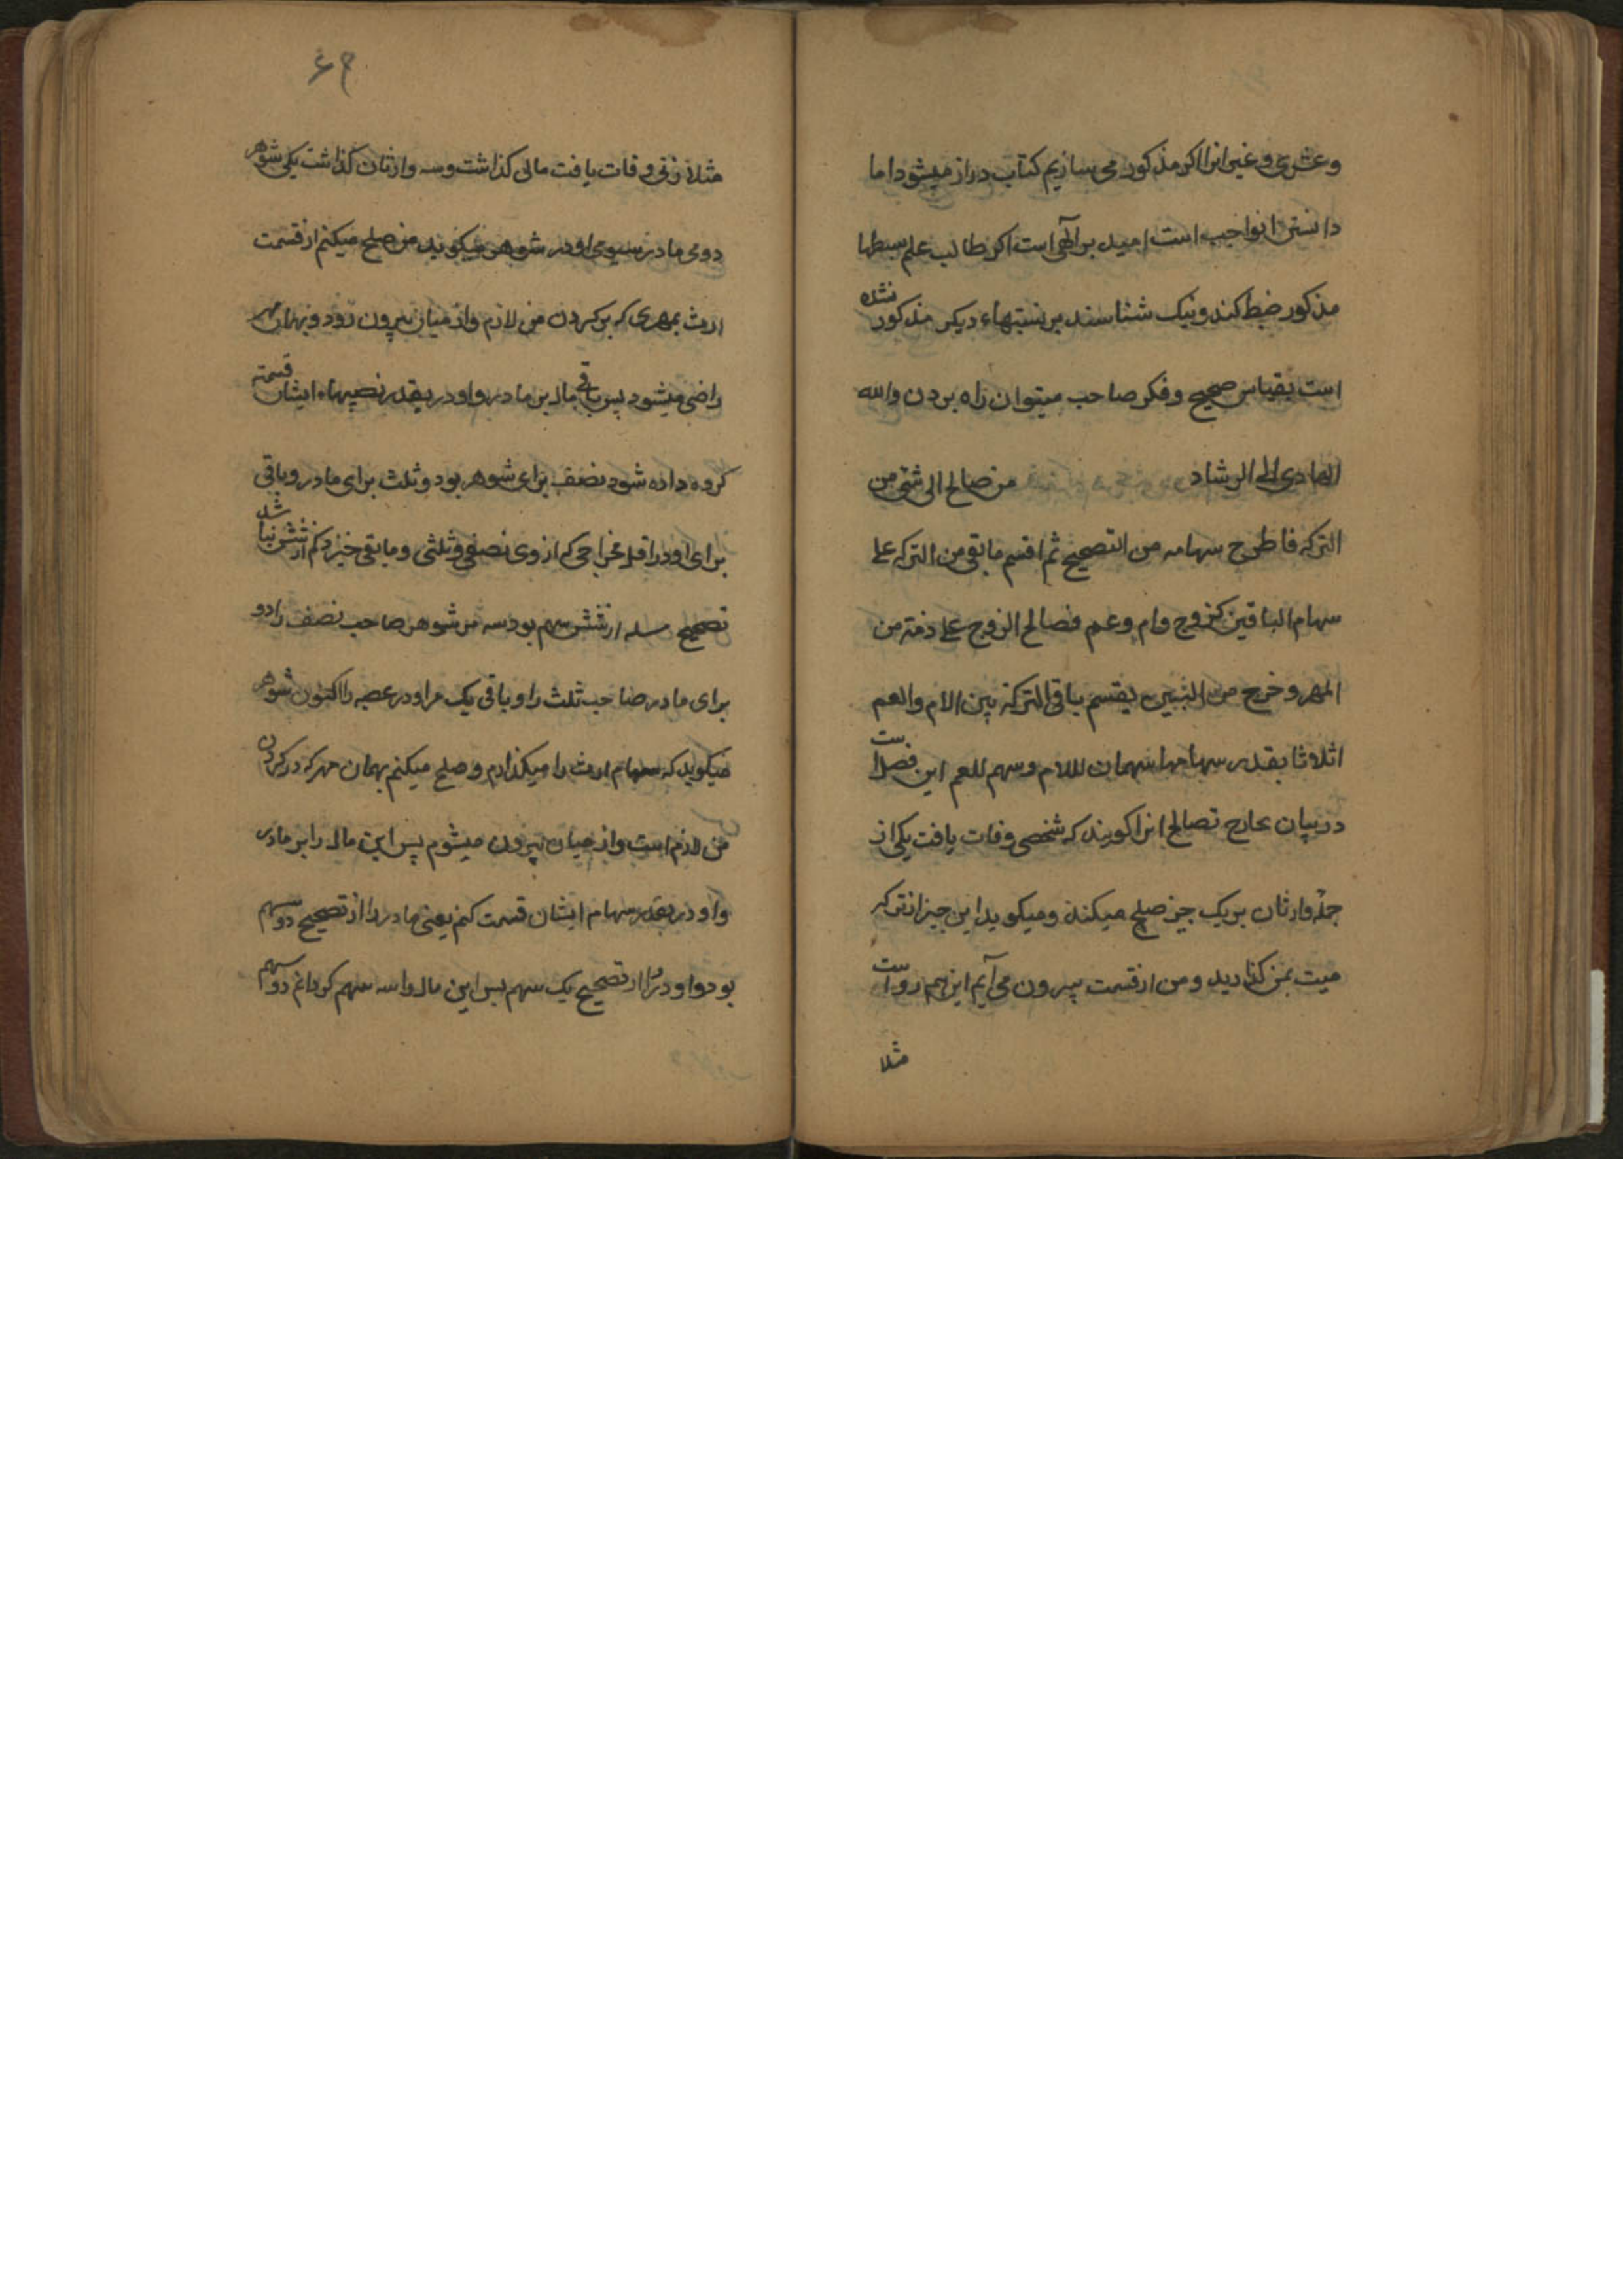 وعشری و غیر انرا اکر مذکور می سازیم کتاب دراز میشود اما
دانستن انواجب است امید براآلهی است اکر طالب علم بسطها
مذکور ضبط کند و نیک شناسند بر نسبتهاء دیکر مذکور نشده
است بقیاس صحیح و فکر صاحب میتوان راه بردن والله
الهادی الی الرشاد من صالح الی شئ من
الترکه فاطرح سهامه من التصحیح ثم اقسم مابقی من الترکه علے
سهام الباقین کزوج وام وعم فصالح الزوج علے ذمته من
المهر وخرج من البین یقسم باقی الترکة بین الام والعم
اثلاثا بقدر سهامها سهمان للام وسهم للعم این فصل است
در بیان تخارج تصالح انرا کویند که شخصی وفات یافت یکی از
جملۀ وارثان بر یک چیز صلح میکند ومیکوید این چیز از ترکه
میت بمن کذارید ومن از قسمت بیرون می آیم این هم رواست
مثلا
۶۳
مثلا زنی وفات یافت مالی کذاشت وسه وارثان کذاشت یکی شوهر
دومی مادر سیومی اودر شوهر میکوید من صلح میکنم از قسمت
ارث بمهری که بر کردن من لازم واز میان بیرون رود وبهمان مهر
راضی میشود پس باقی مال بر مادر واودر بقدر نصیبهاء ایشان قسمته
کروه داده شود نصف برای شوهر بود وثلث برای مادر وباقی
برای اودر اقل مخراجی که از وی نصفی وثلثی ومابقی خیزد کم از شش نباشد
تصحیح مسله از شش سهم بود سه مر شوهر صاحب نصف را دو
برای مادر صاحب ثلث را وباقی یک مر اودر عصبه را اکنون شوهر
میکوید که سهام ارث را میکذارم وصلح میکنم بهمان مهر که در کردن
من لازم است واز میان بیرون میشوم پس این مال را بر مادر
واودر بقدر سهام ایشان قسمت کنم یعنی مادر را از تصحیح دو سهم
بود واودر را از تصحیح یک سهم پس این مال را سه سهم کردانم دو سهم